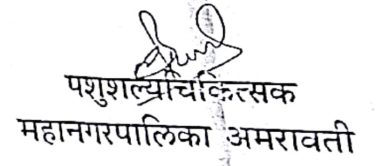 पशुशल्यचिकित्सक
महानगरपालिका अमरावती